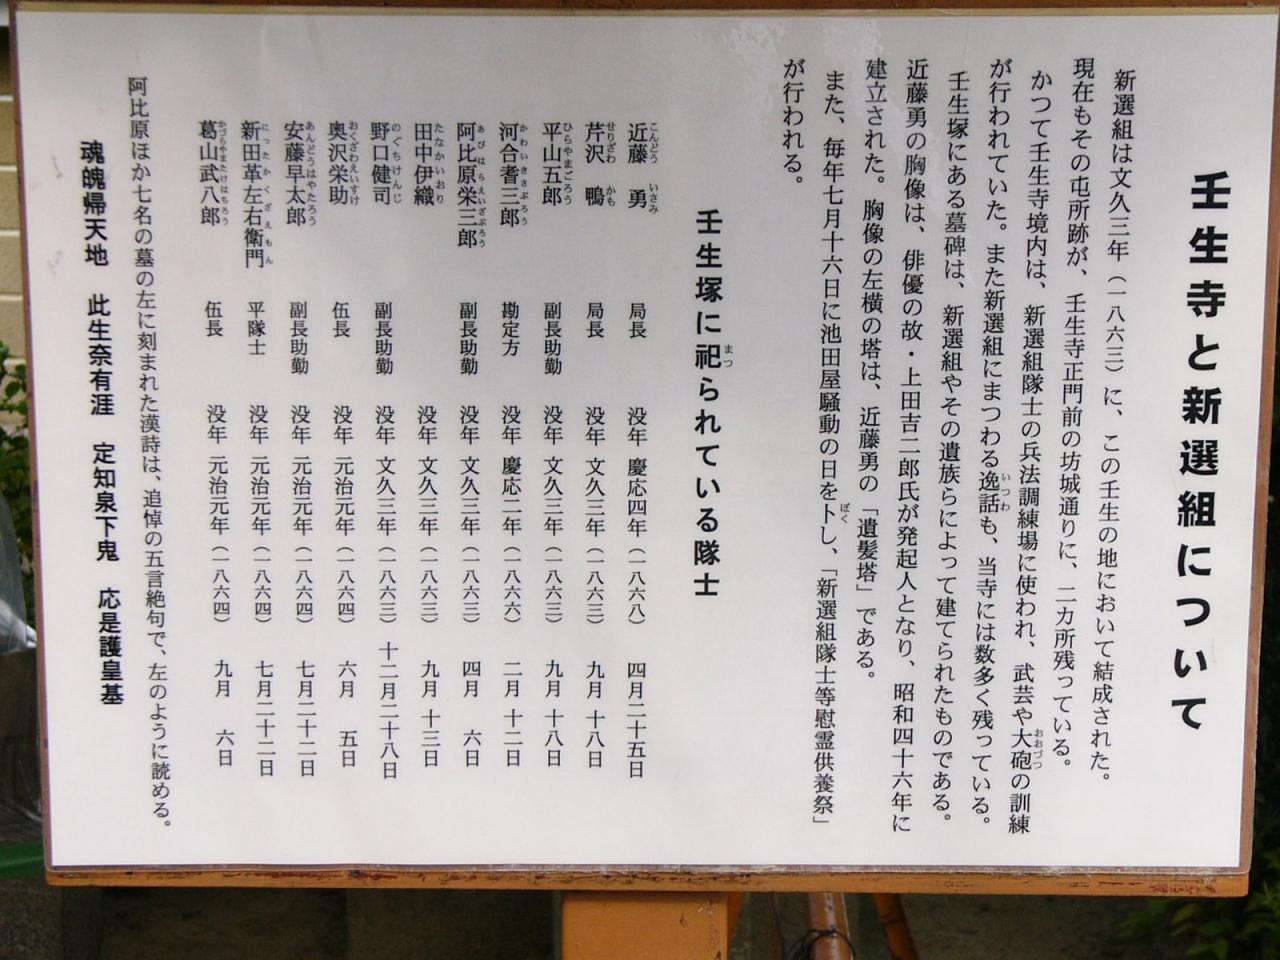 壬生寺と新選組について
新選組は文久三年（一八六三）に、この壬生の地において結成された。
現在もその屯所跡が、壬生寺正門前の坊城通りに、二カ所残っている。
かつて壬生寺境内は、新選組隊士の兵法調練場に使われ、武芸や大砲の訓練
おおづつ
が行われていた。また新選組にまつわる逸話も、当寺には数多く残っている。
いつわ
壬生塚にある墓碑は、新選組やその遺族らによって建てられたものである。
近藤勇の胸像は、俳優の故・上田吉二郎氏が発起人となり、昭和四十六年に
建立された。胸像の左横の塔は、近藤勇の「遺髪塔」である。
また、毎年七月十六日に池田屋騒動の日を卜し、「新選組隊士等慰霊供養祭」
ぼく
が行われる。
壬生塚に祀られている隊士
まつ
近藤　勇　局長　没年 慶応四年（一八六八）四月二十五日
こんどう　いさみ
芹沢　鴨　局長　没年 文久三年（一八六三）九月 十八日
せりざわ　かも
平山五郎　副長助勤　没年 文久三年（一八六三）九月 十八日
ひらやまごろう
河合耆三郎　勘定方　没年 慶応二年（一八六六）二月 十二日
かわいきさぶろう
阿比原栄三郎　副長助勤　没年 文久三年（一八六三）四月　六日
あびはらえいざぶろう
田中伊織　没年 文久三年（一八六三）九月 十三日
たなかいおり
野口健司　副長助勤　没年 文久三年（一八六三）十二月二十八日
のぐちけんじ
奥沢栄助　伍長　没年 元治元年（一八六四）六月　五日
おくざわえいすけ
安藤早太郎　副長助勤　没年 元治元年（一八六四）七月二十二日
あんどうはやたろう
新田革左右衛門　平隊士　没年 元治元年（一八六四）七月二十二日
にったかくざえもん
葛山武八郎　伍長　没年 元治元年（一八六四）九月　六日
かづらやまたけはちろう
阿比原ほか七名の墓の左に刻まれた漢詩は、追悼の五言絶句で、左のように読める。
魂魄帰天地　此生奈有涯　定知泉下鬼　応是護皇基